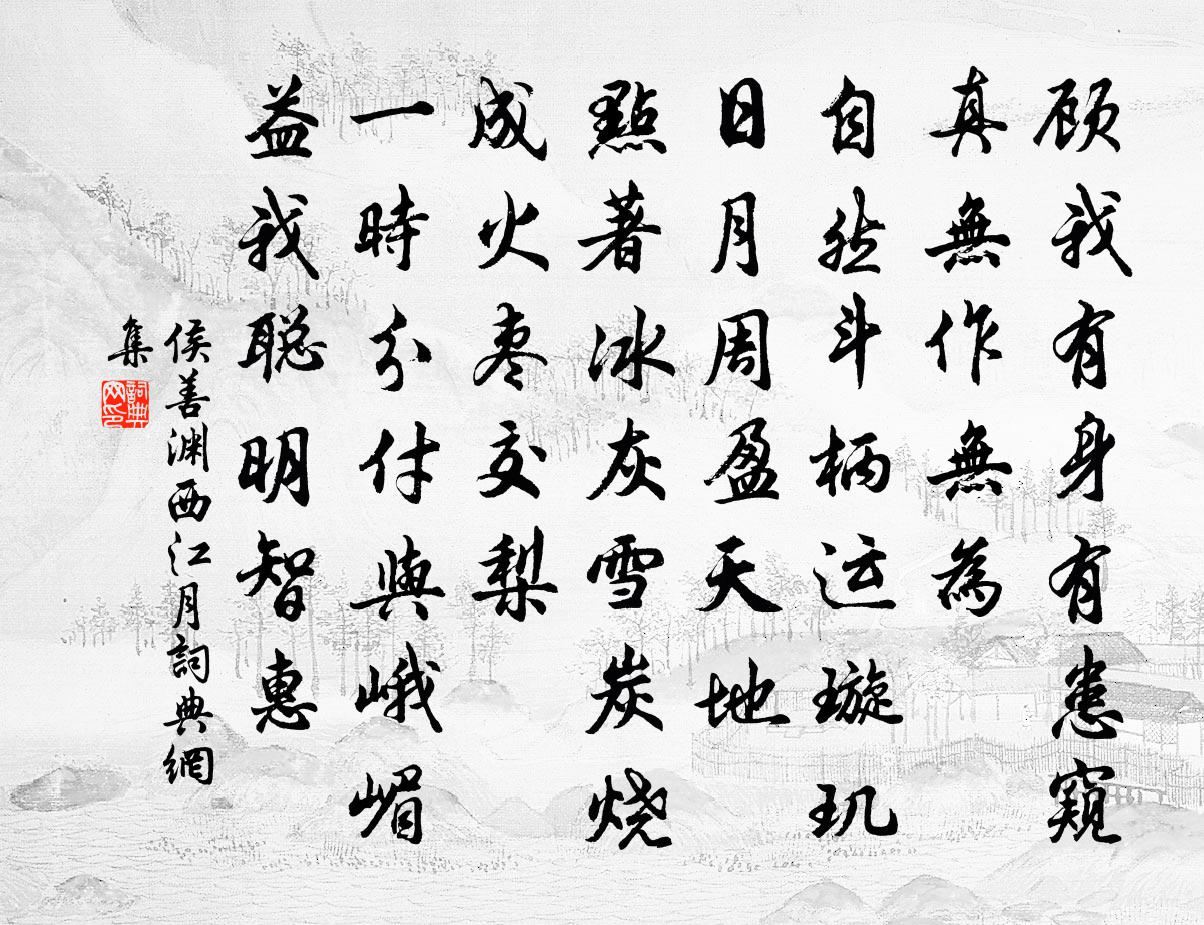 顾我有身有患窥
真無作無為
自然斗柄运璇玑
日月周盈天地
點著冰灰雪炭烧
成火枣交梨
一時分付與峨嵋
益我聪明智惠
侯善渊西江月詞典網
集
詞典网印